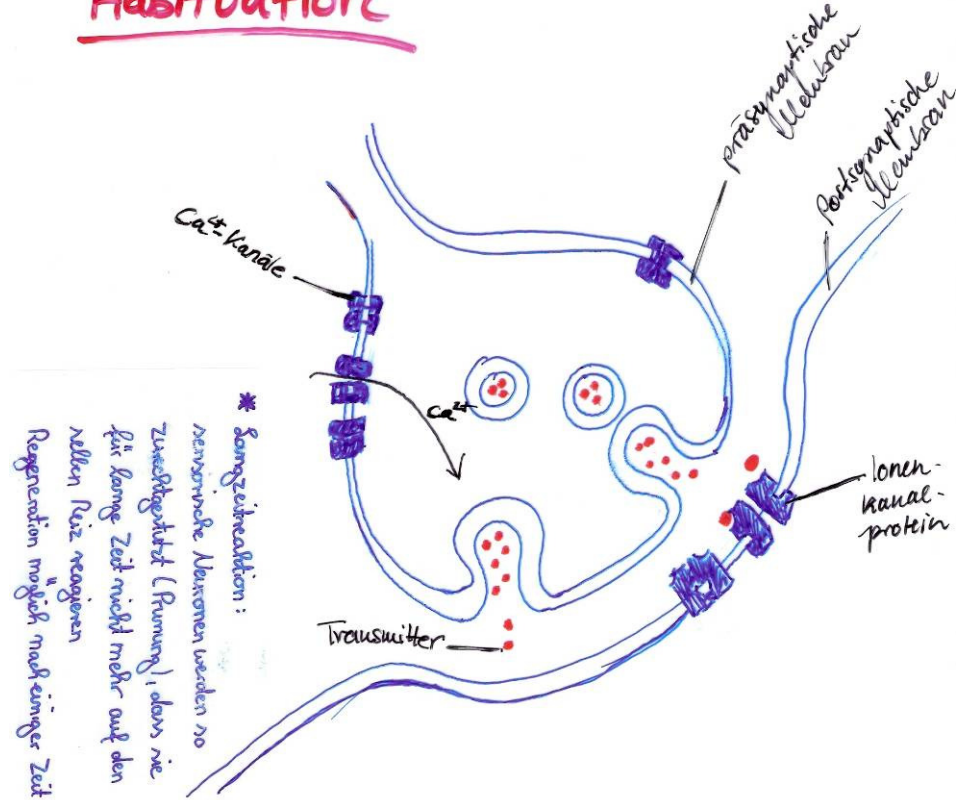 Habituation
präsynaptische
Membran
Postsynaptische
Membran
Ca²⁺-Kanäle
Ca²⁺
Ionen-
kanal-
protein
Transmitter
* Langzeitreaktion:
sensorische Neuronen werden so
zurechtgestutzt (Prunung), dass sie
für lange Zeit nicht mehr auf den
selben Reiz reagieren
Regeneration möglich nach einiger Zeit